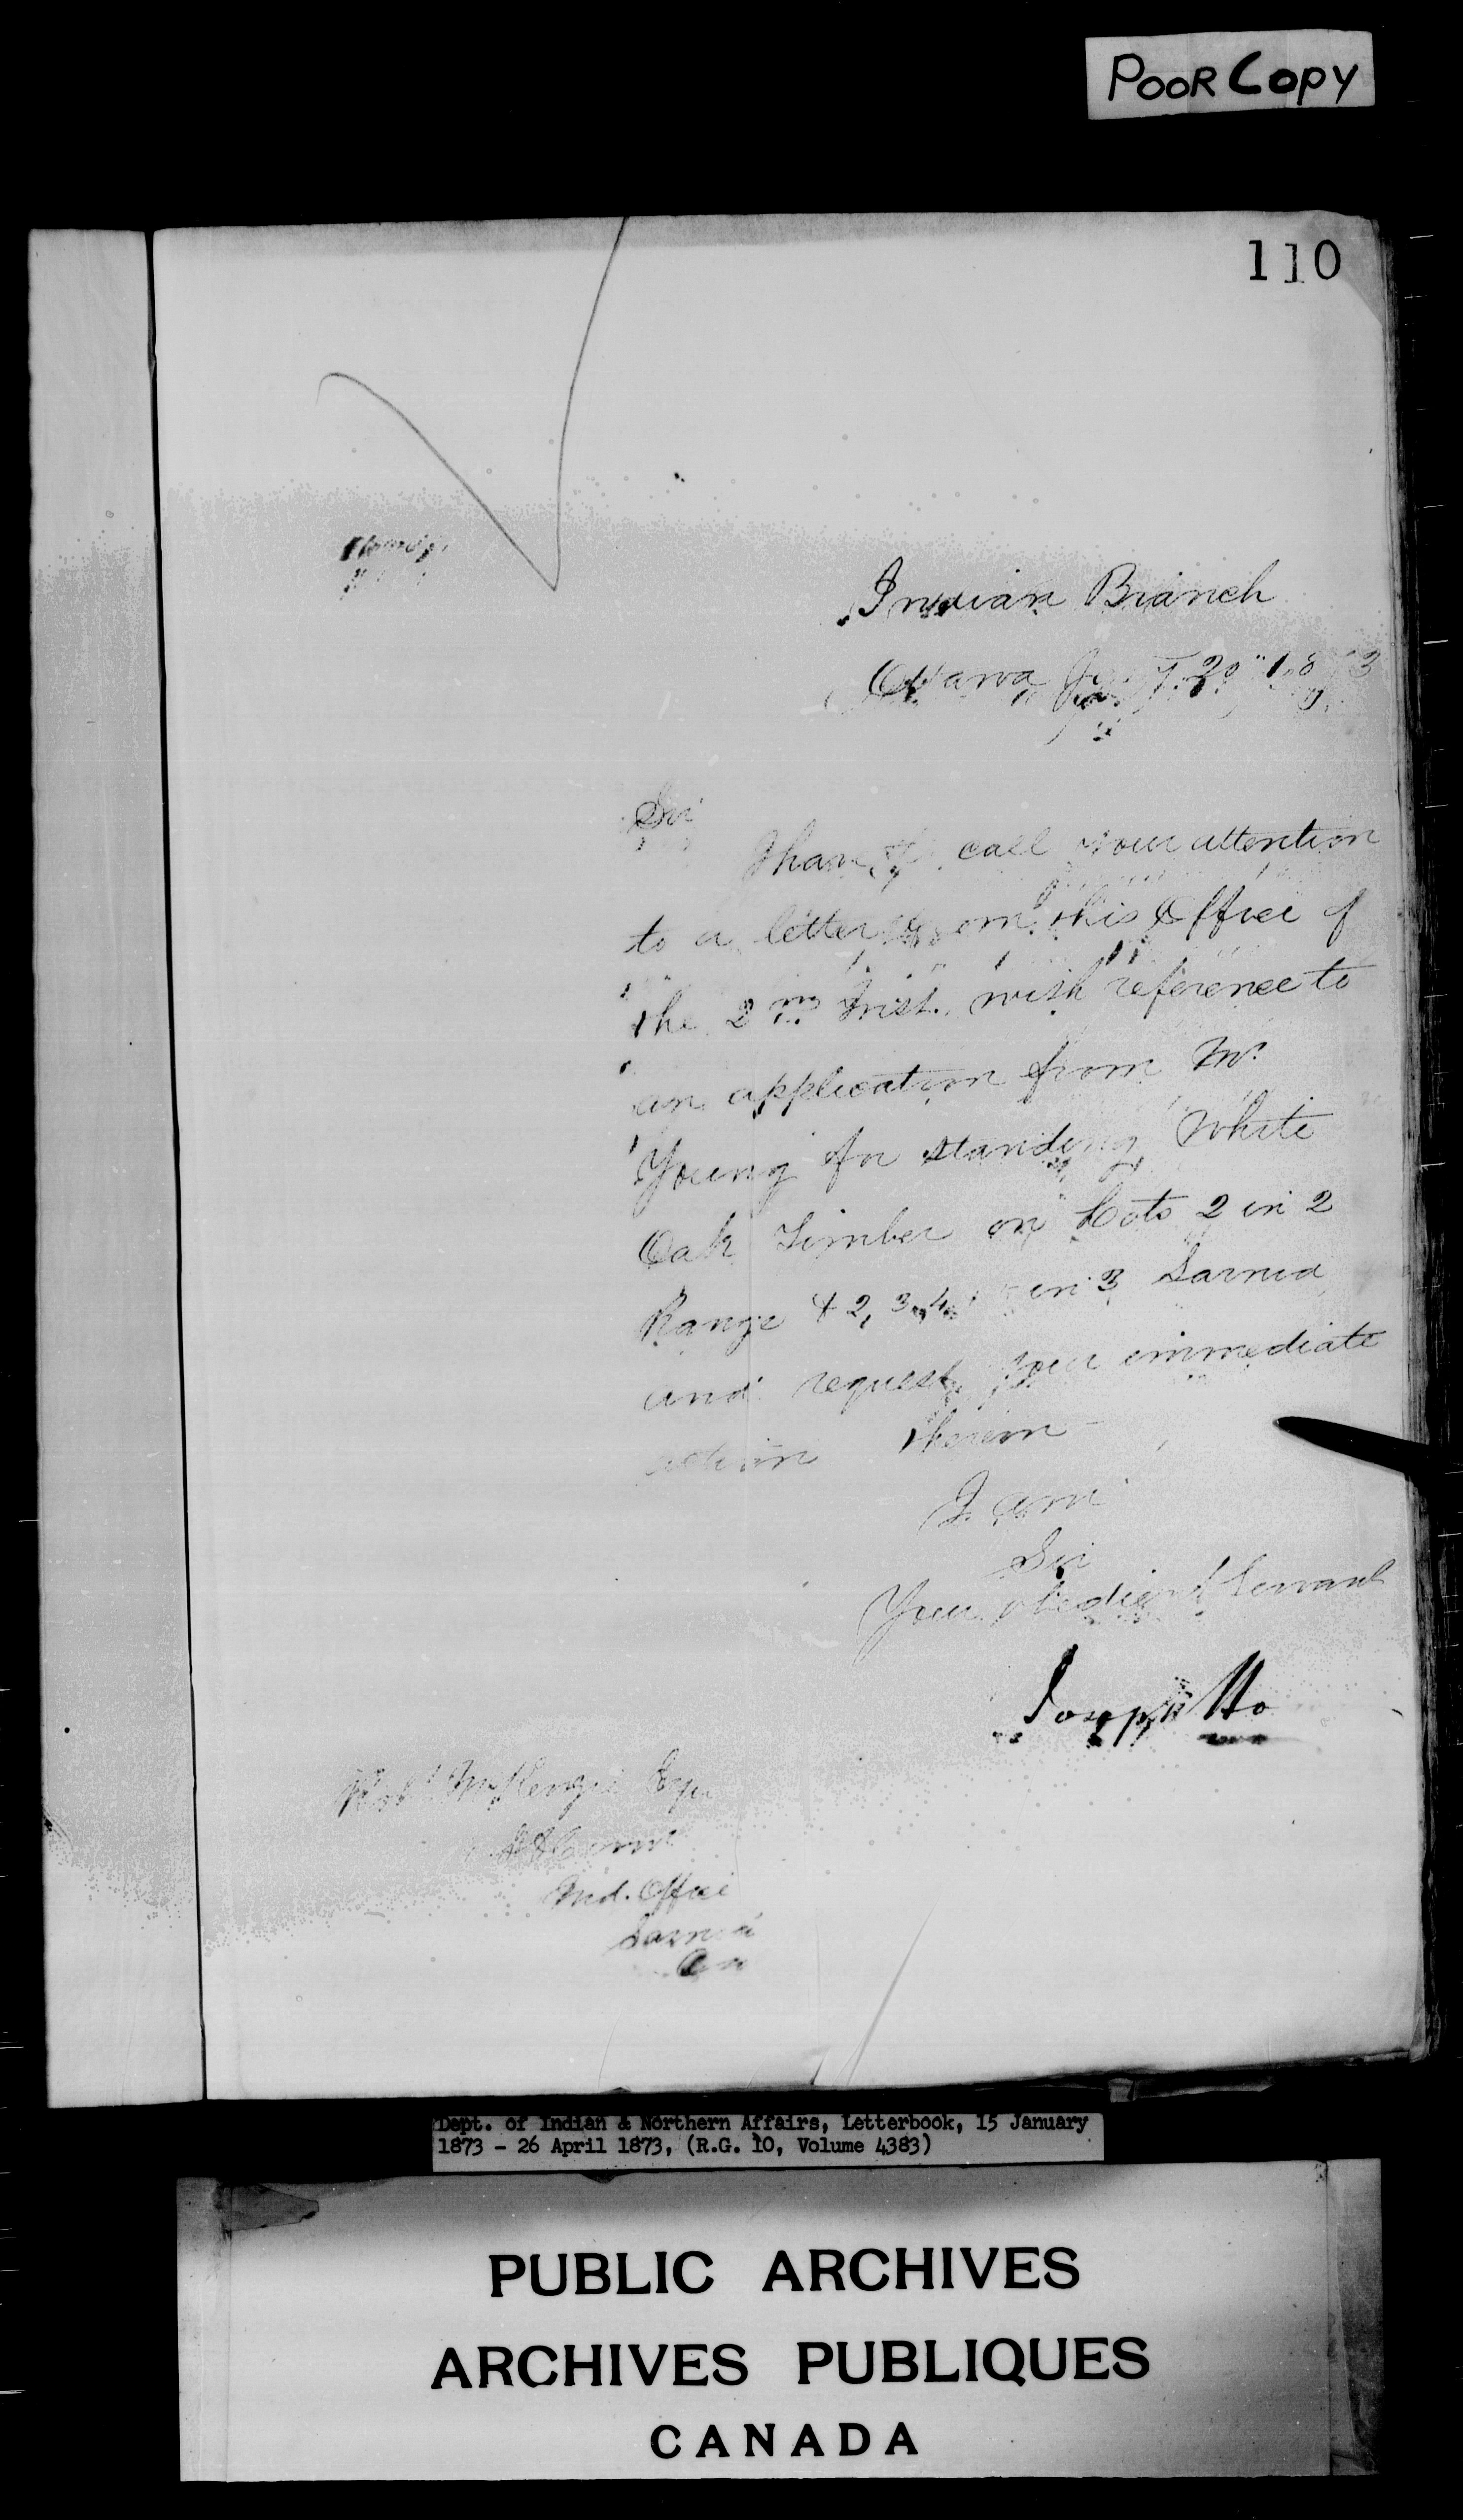 POOR COPY
110
Indian Branch
Ottawa 20 1873
Sir
I have to call your attention
to a letter from this Office of
the 2nd Inst. with reference to
an application from Mr
Young for standing White
Oak Timber on Lots 2 in 2
Range & 2, 3, 4 in 3 Sarnia
and request your immediate
action therein
I am
Sir
Your obedient Servant
Joseph Ho
Robt McKenzie Esqr
Ind. Office
Sarnia
On
Dept. of Indian & Northern Affairs, Letterbook, 15 January
1873 - 26 April 1873, (R.G. 10, Volume 4383)
PUBLIC ARCHIVES
ARCHIVES PUBLIQUES
CANADA